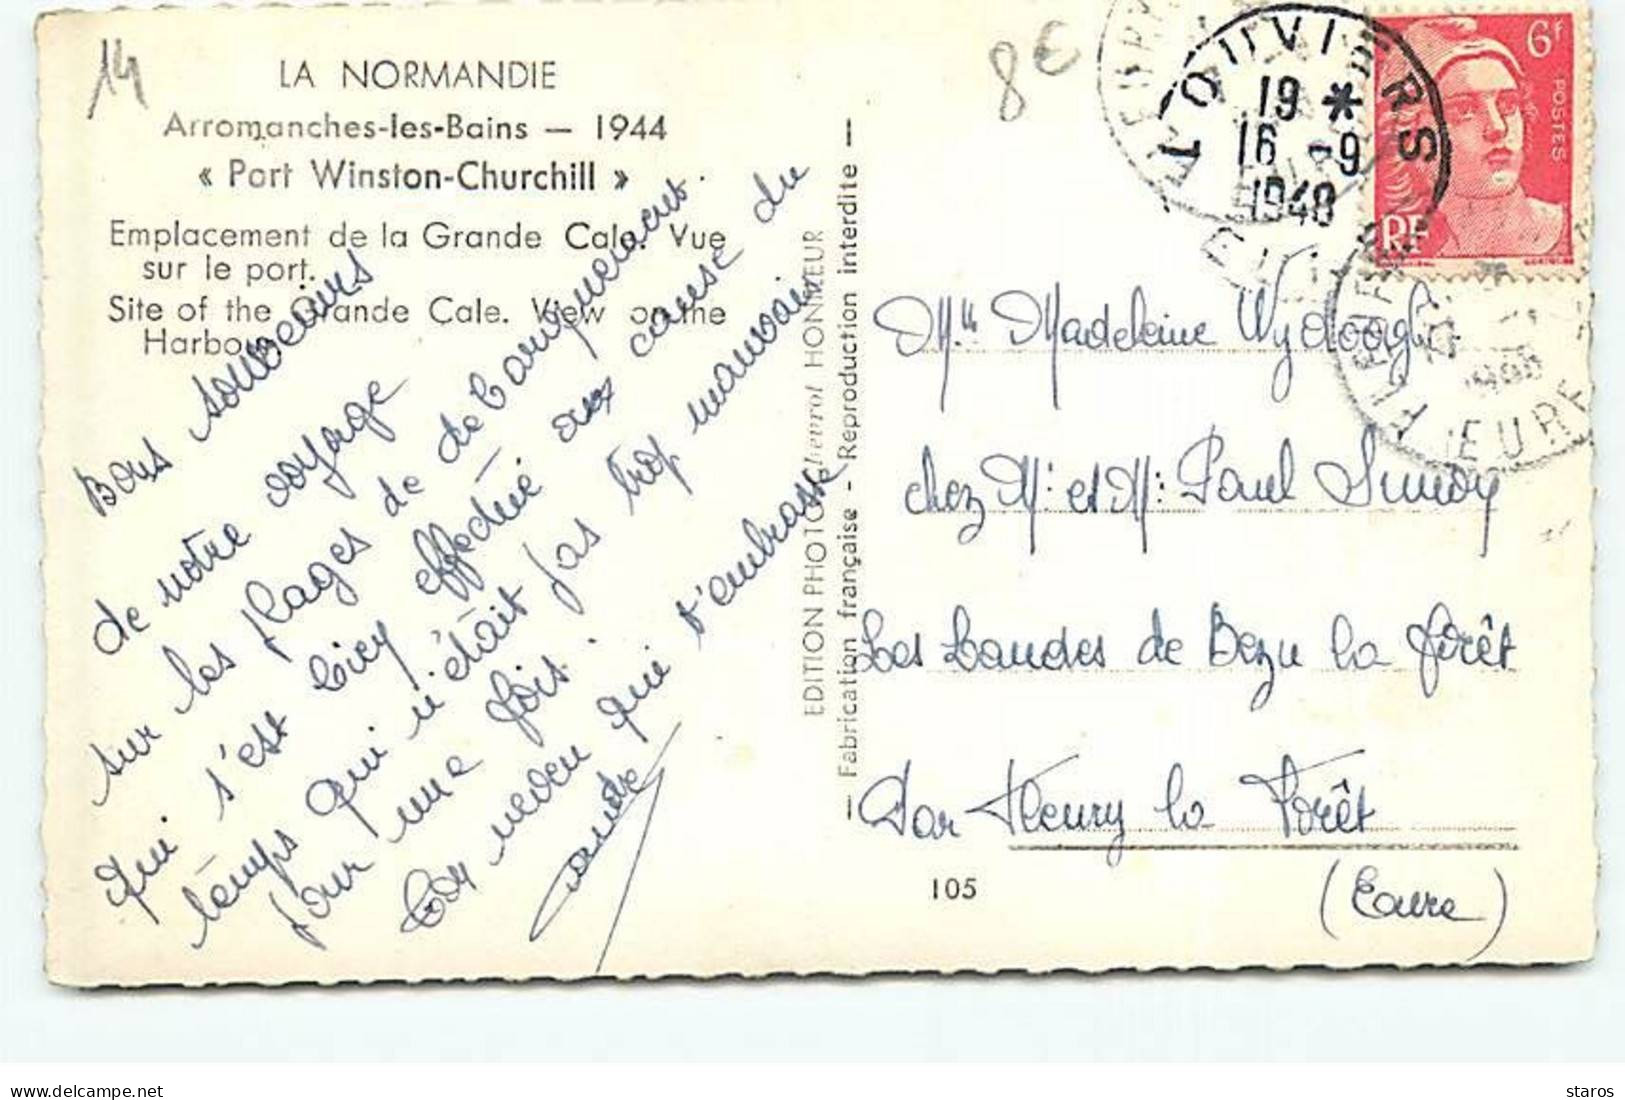 14
8€
LA NORMANDIE
Arromanches-les-Bains — 1944
« Port Winston-Churchill »
Emplacement de la Grande Cale. Vue
sur le port.
Site of the Grande Cale. View on the
Harbour
Bons souvenirs
de notre voyage
sur les plages de débarquement
qui s'est bien effectué aux cause du
temps qui n'était pas trop mauvais
pour une fois.
Ton neveu qui t'embrasse
André
EDITION PHOTO HONNEUR
— Fabrication française - Reproduction interdite —
TOUVIERS
19 *
16 -9
1948
6f
POSTES
RF
FLEURY
EURE
Mlle Madeleine
chez Mr et Mr Paul
Les Landes de Bezu la forêt
Par Fleury la Forêt
(Eure)
105
staros